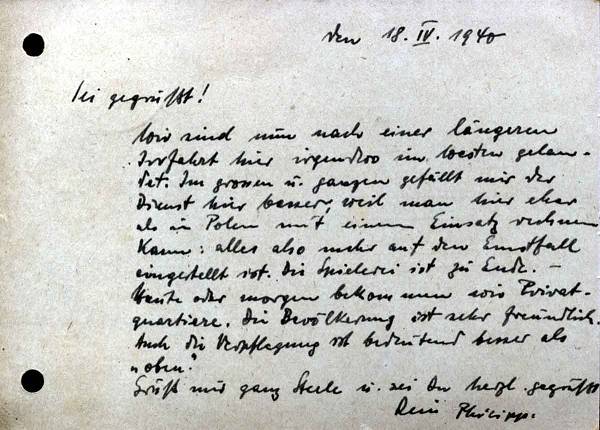 den 18. IV. 1940
Sei gegrüßt!
Wir sind nun nach einer längeren
Irrfahrt hier irgendwo im Westen gelan-
det. Im grossen u. ganzen gefällt mir der
Dienst hier besser, weil man hier eher
als in Polen mit einem Einsatz rechnen
kann: alles also mehr auf den Ernstfall
eingestellt ist. Die Spielerei ist zu Ende. –
Heute oder morgen bekommen wir Privat-
quartiere. Die Bevölkerung ist sehr freundlich.
Auch die Verpflegung ist bedeutend besser als
"oben".
Grüß mir ganz u. sei Du herzl. gegrüßt
Dein Philipp.